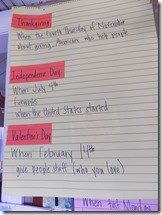 Thanksgiving
When the fourth Thursday of November
about giving, Americans who help people
Independence Day
When July 4th
Fireworks
When the United States started
Valentine's Day
When February 14th
give people stuff (who you love)